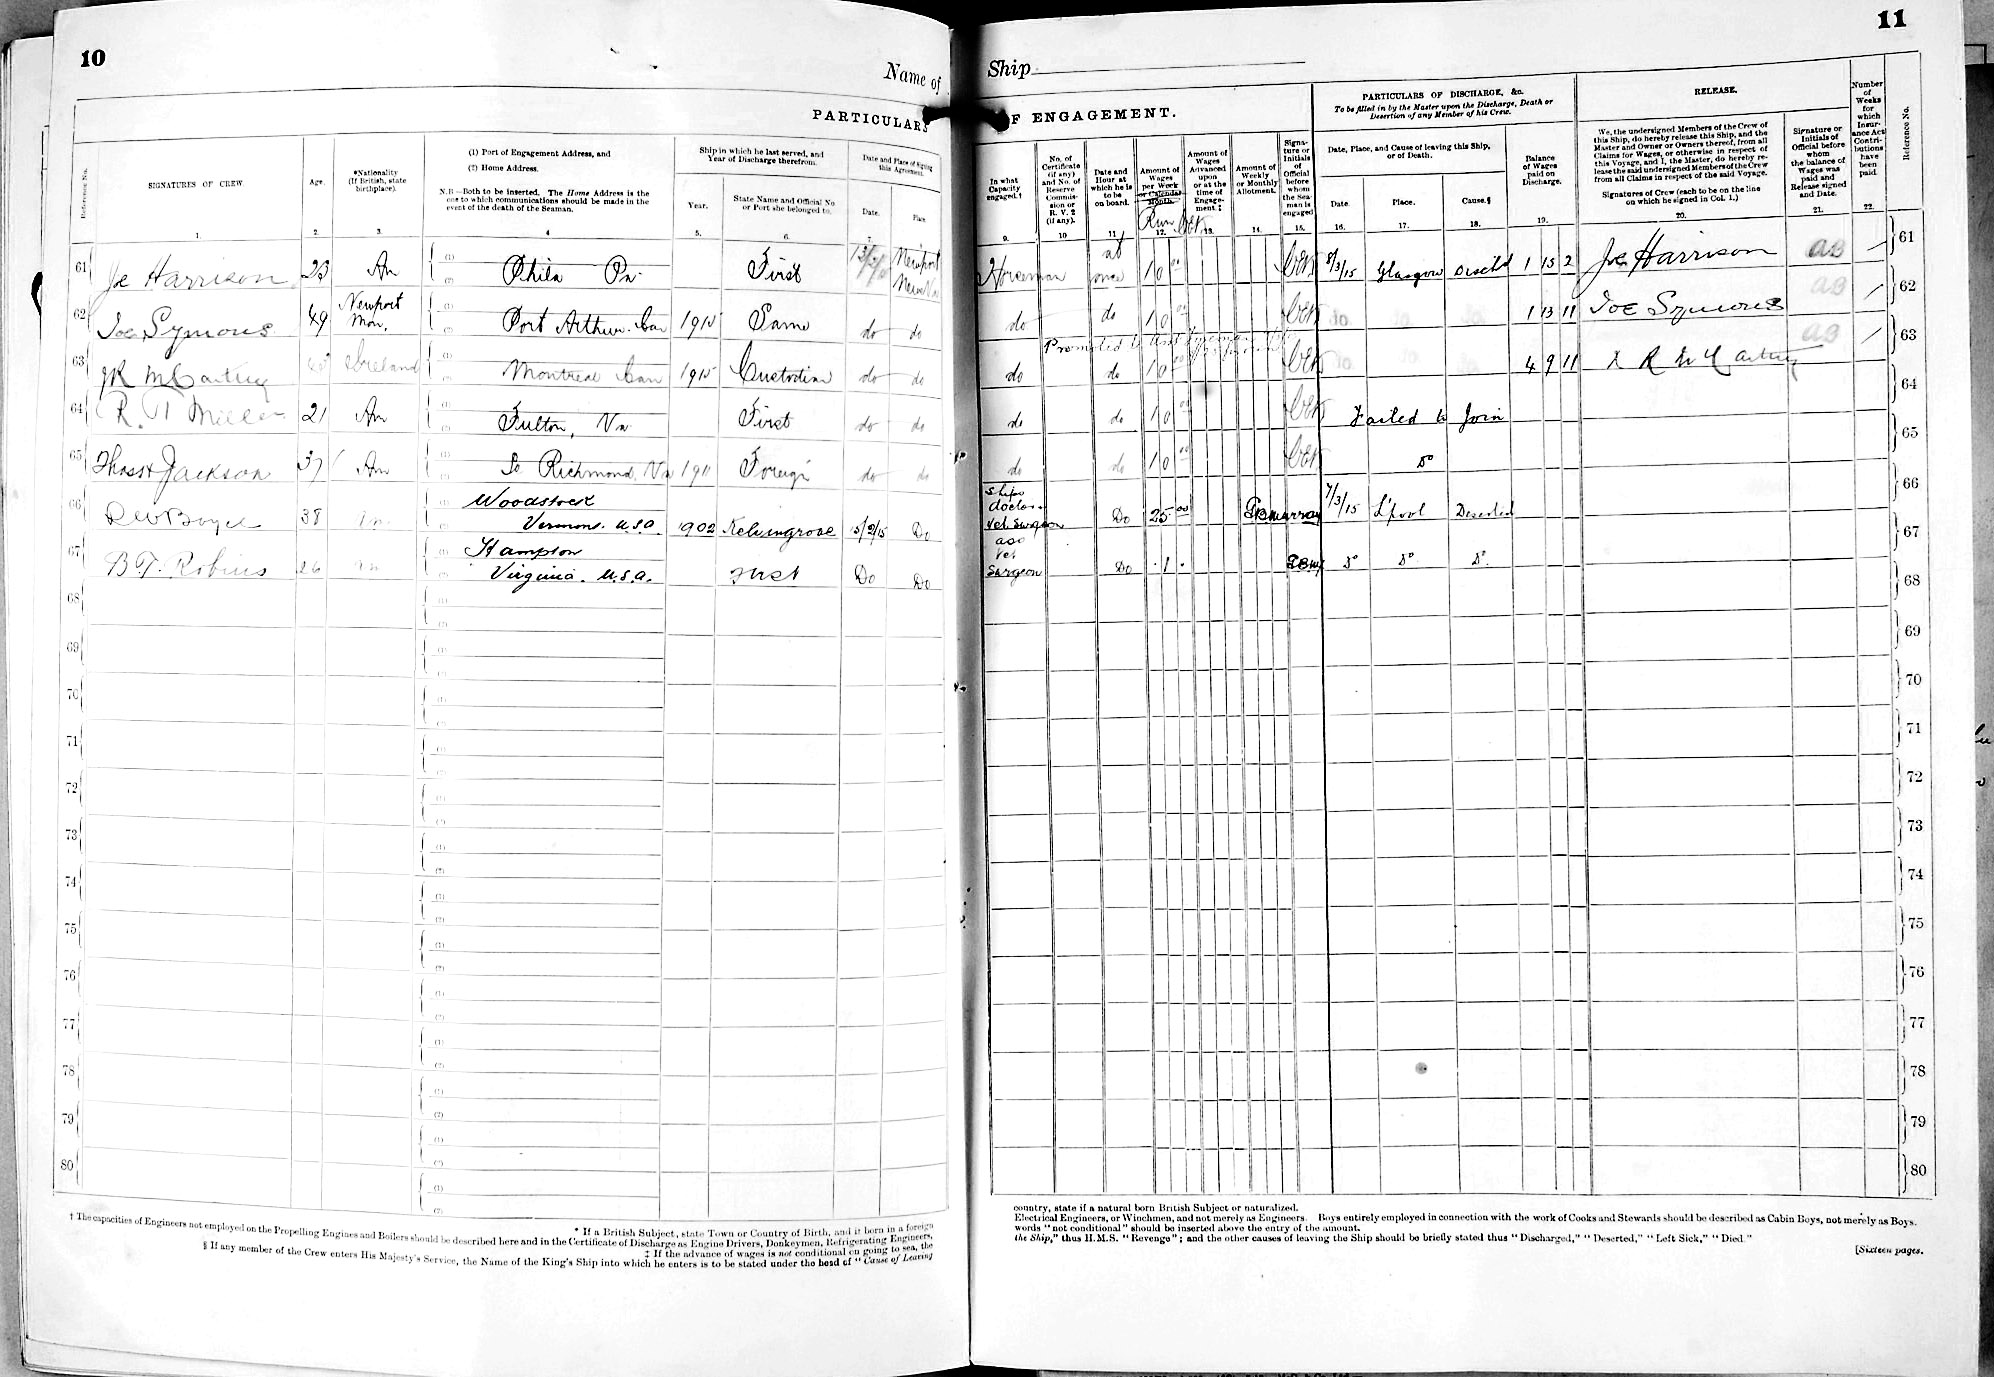 10
Name of
PARTICULARS
Reference No.
SIGNATURES OF CREW.
Age.
*Nationality
(If British, state
birthplace).
(1) Port of Engagement Address, and
(2) Home Address.
N.B.—Both to be inserted. The Home Address is the
one to which communications should be made in the
event of the death of the Seaman.
Ship in which he last served, and
Year of Discharge therefrom.
Year.
State Name and Official No.
or Port she belonged to.
Date and Place of signing
this Agreement.
Date.
Place.
1. 2. 3. 4 5. 6. 7.
61 Joe Harrison 23 An Phila Pa First Newport News Va
62 Joe Symons 49 Newport Mon. Port Arthur Can 1915 Same do do
63 JR McCartney Ireland Montreal Can 1915 Custodian do do
64 R. Miller 21 An Fulton, Va First do do
65 Thos Jackson 37 An So Richmond Va 1911 Foreign do do
66 38 Woodstock
Vermont. U.S.A. 1902 Kelvingrove 15/2/15 Do
67 B.T. Robins 26 Hampton
Virginia. U.S.A. First Do Do
68
69
70
71
72
73
74
75
76
77
78
79
80
* If a British Subject, state Town or Country of Birth, and if born in a foreign
† The capacities of Engineers not employed on the Propelling Engines and Boilers should be described here and in the Certificate of Discharge as Engine Drivers, Donkeymen, Refrigerating Engineers,
‡ If the advance of wages is not conditional on going to sea, the
§ If any member of the Crew enters His Majesty's Service, the Name of the King's Ship into which he enters is to be stated under the head of "Cause of Leaving
11
Ship
OF ENGAGEMENT.
In what
Capacity
engaged.†
No. of
Certificate
(if any)
and No. of
Reserve
Commis-
sion or
R. V. 2
(if any).
Date and
Hour at
which he is
to be
on board.
Amount of
Wages
per Week
or Calendar
Month.
Run
Amount of
Wages
Advanced
upon
or at the
time of
Engage-
ment.‡
Amount of
Weekly
or Monthly
Allotment.
Signa-
ture or
Initials
of
Official
before
whom
the Sea-
man is
engaged
PARTICULARS OF DISCHARGE, &c.
To be filled in by the Master upon the Discharge, Death or
Desertion of any Member of his Crew.
Date, Place, and Cause of leaving this Ship,
or of Death.
Date.
Place.
Cause.§
Balance
of Wages
paid on
Discharge.
RELEASE.
We, the undersigned Members of the Crew of
this Ship, do hereby release this Ship, and the
Master and Owner or Owners thereof, from all
Claims for Wages, or otherwise in respect of
this Voyage, and I, the Master, do hereby re-
lease the said undersigned Members of the Crew
from all Claims in respect of the said Voyage.
Signatures of Crew (each to be on the line
on which he signed in Col. 1.)
Signature or
Initials of
Official before
whom
the balance of
Wages was
paid and
Release signed
and Date.
Number
of
Weeks
for
which
Insur-
ance Act
Contri-
butions
have
been
paid.
Reference No.
9. 10 11 12. 13. 14. 15. 16. 17. 18. 19. 20. 21. 22.
Horseman at once 10 00 8/3/15 Glasgow Disch'd 1 15 2 Joe Harrison AB 61
do do 10 do do do 1 13 11 Joe Symons AB 62
Promoted to Asst Foreman
do do 10 00 do do do 4 9 11 R McCartney AB 63
do do 10 00 Failed to Join 64
do do 10 00 Do 65
Ships
doctor
Vet Surgeon Do 25 00 GBMurray 7/3/15 L'pool Deserted 66
Vet
Surgeon Do 1 GBM Do Do Do 67
68
69
70
71
72
73
74
75
76
77
78
79
80
country, state if a natural born British Subject or naturalized.
Electrical Engineers, or Winchmen, and not merely as Engineers. Boys entirely employed in connection with the work of Cooks and Stewards should be described as Cabin Boys, not merely as Boys.
words "not conditional" should be inserted above the entry of the amount.
the Ship," thus H.M.S. "Revenge"; and the other causes of leaving the Ship should be briefly stated thus "Discharged," "Deserted," "Left Sick," "Died."
[Sixteen pages.